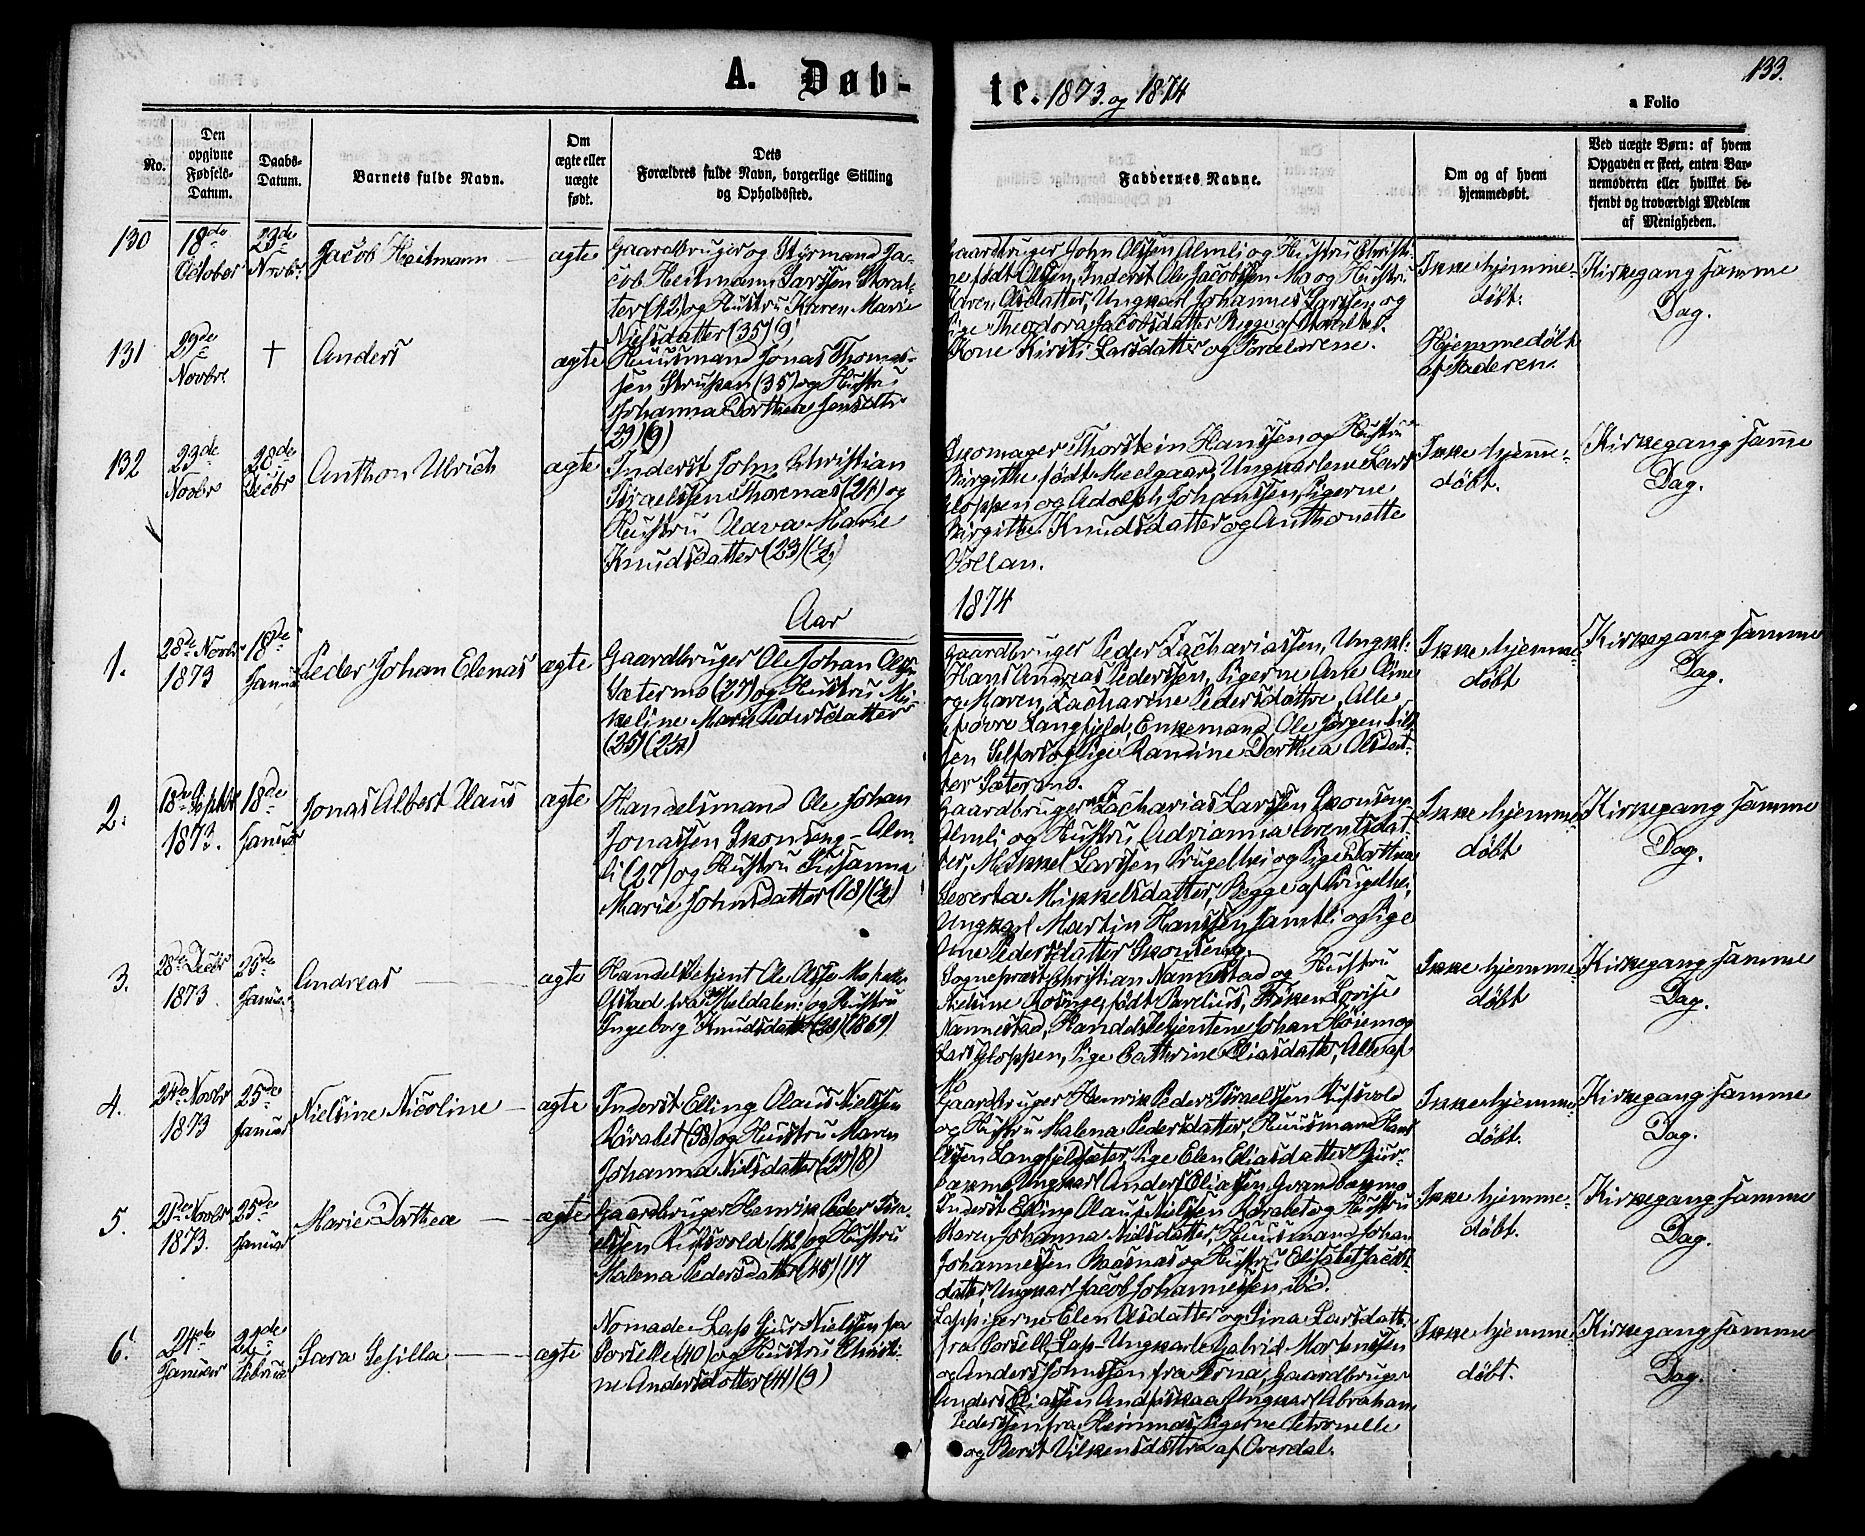 133.
A. Døb-
te. 1873. og 1874
a Folio
No.
Den
opgivne
Fødsels-
Datum.
Daabs-
Datum.
Barnets fulde Navn.
Om
ægte eller
uægte
født.
Dets
Forældres fulde Navn, borgerlige Stilling
og Opholdssted.
Faddernes Navne.
Om og af hvem
hjemmedøbt.
Ved uægte Børn: af hvem
Opgaven er skeet, enten Bar-
nemoderen eller hvilket be-
kjendt og troværdigt Medlem
af Menigheden.
130
18de
October
23de
Novbr.
Jacob Heitmann
ægte
Gaardbruger og Styrmand Ja-
cob Heitmann Larssen Storal-
ter (42) og Hustru Karen Marie
Nielsdatter (35) (9)
Gaardbruger John Olssen Almli og Hustru Christi-
ne født Olsen, Inderst Ole Jacobssen Mo og Hustru
Karen Olsdatter, Ungkarl Johannes Larssen og
Pige Theodora Jacobsdatter Begge af
Ikke hjemme-
døbt.
Kirkegang samme
Dag.
131
29de
Novbr.
+
Anders
ægte
Huusmand Jonas Thomas-
sen Strupen (35) og Hustru
Johanna Dorthea Jensdtr
29) (9)
Kone Kirsti Larsdatter og Forældrene.
Hjemmedøbt
af Faderen.
132
23de
Novbr
28de
Decbr
Anthon Ulrich
ægte
Inderst John Christian
Israelssen Thorenæs (24) og
Hustru Olava Marie
Knudsdatter (23) (½)
Skomager Thorstein Hanssen og Hustru
Birgithe født Meelgaard, Ungkarlene Lars
Gloppen og Adolph Johanssen, Pigerne
Birgithe Knudsdatter og Anthonette
Tollan.
Ikke hjemme-
døbt.
Kirkegang samme
Dag.
Aar
1874
1.
28de Novbr
1873
18de
Januar
Peder Johan Elenas
ægte
Gaardbruger Ole Johan Olssen
Sætermo (27) og Hustru Mi-
keline Marie Pedersdatter
(25) (2½)
Gaardbruger Peder Zachariassen, Ungkl.
Hans Andreas Pederssen, Pigerne Ane Oline
og Maren Zacharine Pedersdøttre, Alle
af øvre Langfjeld, Enkemand Ole Jørgen Nils-
sen Selfors og Pige Randine Dorthea Olsdat-
ter Sætermo.
Ikke hjemme-
døbt
Kirkegang samme
Dag.
2.
18de Septbr
1873.
18de
Januar
Jonas Albert Klaus
ægte
Handelsmand Ole Johan
Jonassen Skonseng-Alm-
li (27) og Hustru Susanna
Marie Johnsdatter (18) (½)
Gaardbruger Zacharias Larssen Skonseng-
Almli og Hustru Adrianna Arentsdat-
ter, Mikkel Larssen Prugelhei og Pige Dorthea
Severta Mikkelsdatter, Begge af Prugelhei,
Ungkarl Martin Hanssen Jamtli og Pige
Ane Pedersdatter Skonseng.
Ikke hjemme-
døbt
Kirkegang samme
Dag.
3.
28de Decbr
1873.
25de
Januar
Andreas
ægte
Handelsbetjent Ole Olsen
Olstad fra Meldalen, og Hustru
Ingeborg Knudsdatter (28) (1869)
Sognepræst Christian Nannestad og Hustru
Rosinge, født Parelius, Frøken Lovise
Nannestad, Handelsbetjentene Johan Høiem og
Lars Gloppen, Pige Cathrine Eliasdatter, Alle af
Mo
Ikke hjemme-
døbt
Kirkegang samme
Dag.
4.
24de Novbr
1873
25de
Januar
Nielsine Nicoline
ægte
Inderst Elling Olaus Nielssen
Raavabet (38) og Hustru Maren
Johanna Nilsdatter (27) (8)
Gaardbruger Henrik Peder Israelssen Rufsvold
og Hustru Malena Pedersdatter, Huusmand Hans
Olssen Langfjeldsæter, Pige Elen Eliasdatter
Ungkarl Anders Eliassen
Ikke hjemme-
døbt.
Kirkegang samme
Dag.
5.
23de Novbr
1873.
25de
Januar
Marie Dorthea
ægte
Gaardbruger Henrik Peder Isra-
elssen Rufsvold (42) og Hustru
Malena Pedersdatter (45) (17
Inderst Elling Olaus Nielssen Raavabet og Hustru
Maren Johanna Nilsdatter, Huusmand Johan
Johannessen Baasnæs og Hustru Elisabet Jacobs-
datter, Ungkarl Jacob Johannessen, ibd.
Ikke hjemme-
døbt.
Kirkegang samme
Dag.
6.
24de
Januar
22de
Februar
Sara Sesilla
ægte
Nomade-Lap Sjur Nielssen fra
(40) og Hustru Christi-
ne Andersdatter (44) (9)
Lappigerne Elen Olsdatter og Sina Larsdatt.
fra Lap-Ungkarle Gabriel Mortenssen
og Anders Johnssen fra Gaardbruger
Anders Eliassen Andfiskaa Ungkarl Abraham
Pederssen fra Hemnæs, Pigerne Petronelle
og Berit Vilkensdøttre af Overdal.
Ikke hjemme-
døbt.
Kirkegang samme
Dag.